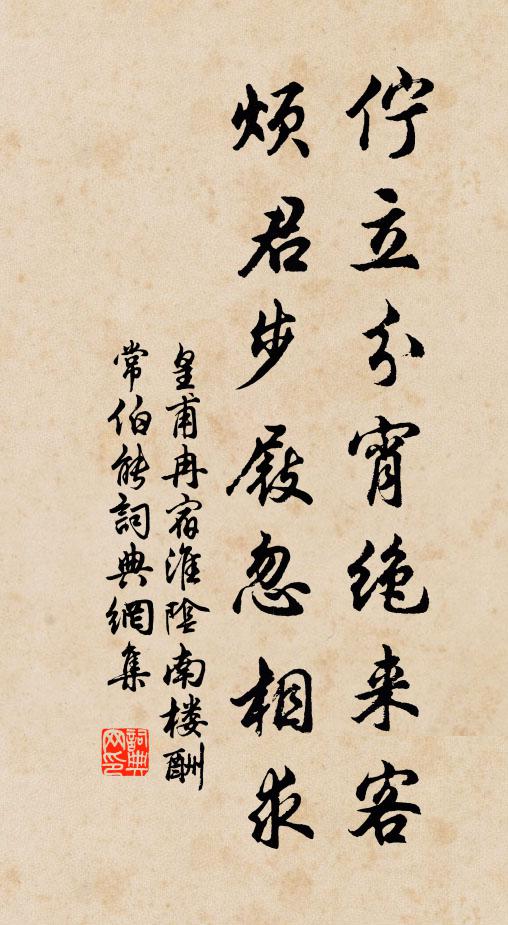 佇立分宵绝来客
烦君步屐忽相求
皇甫冉宿淮陰南楼酬
常伯能詞典網集
詞典网印